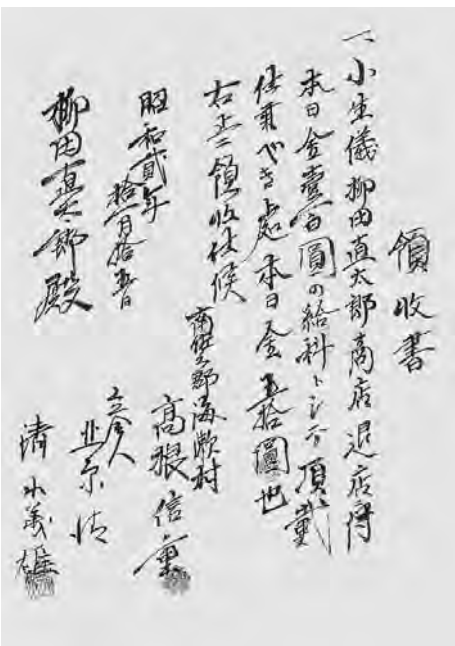 領收書
一小生儀柳田直太郎商店退店得
本日金壹百圓の給料トシテ頂戴
仕事べき處本日金五拾圓也
右正ニ領收仕候
昭和貳年
拾一月拾五日
南佐久郡海瀬村
高
信重
立会人
清水義雄
柳田直太郎殿